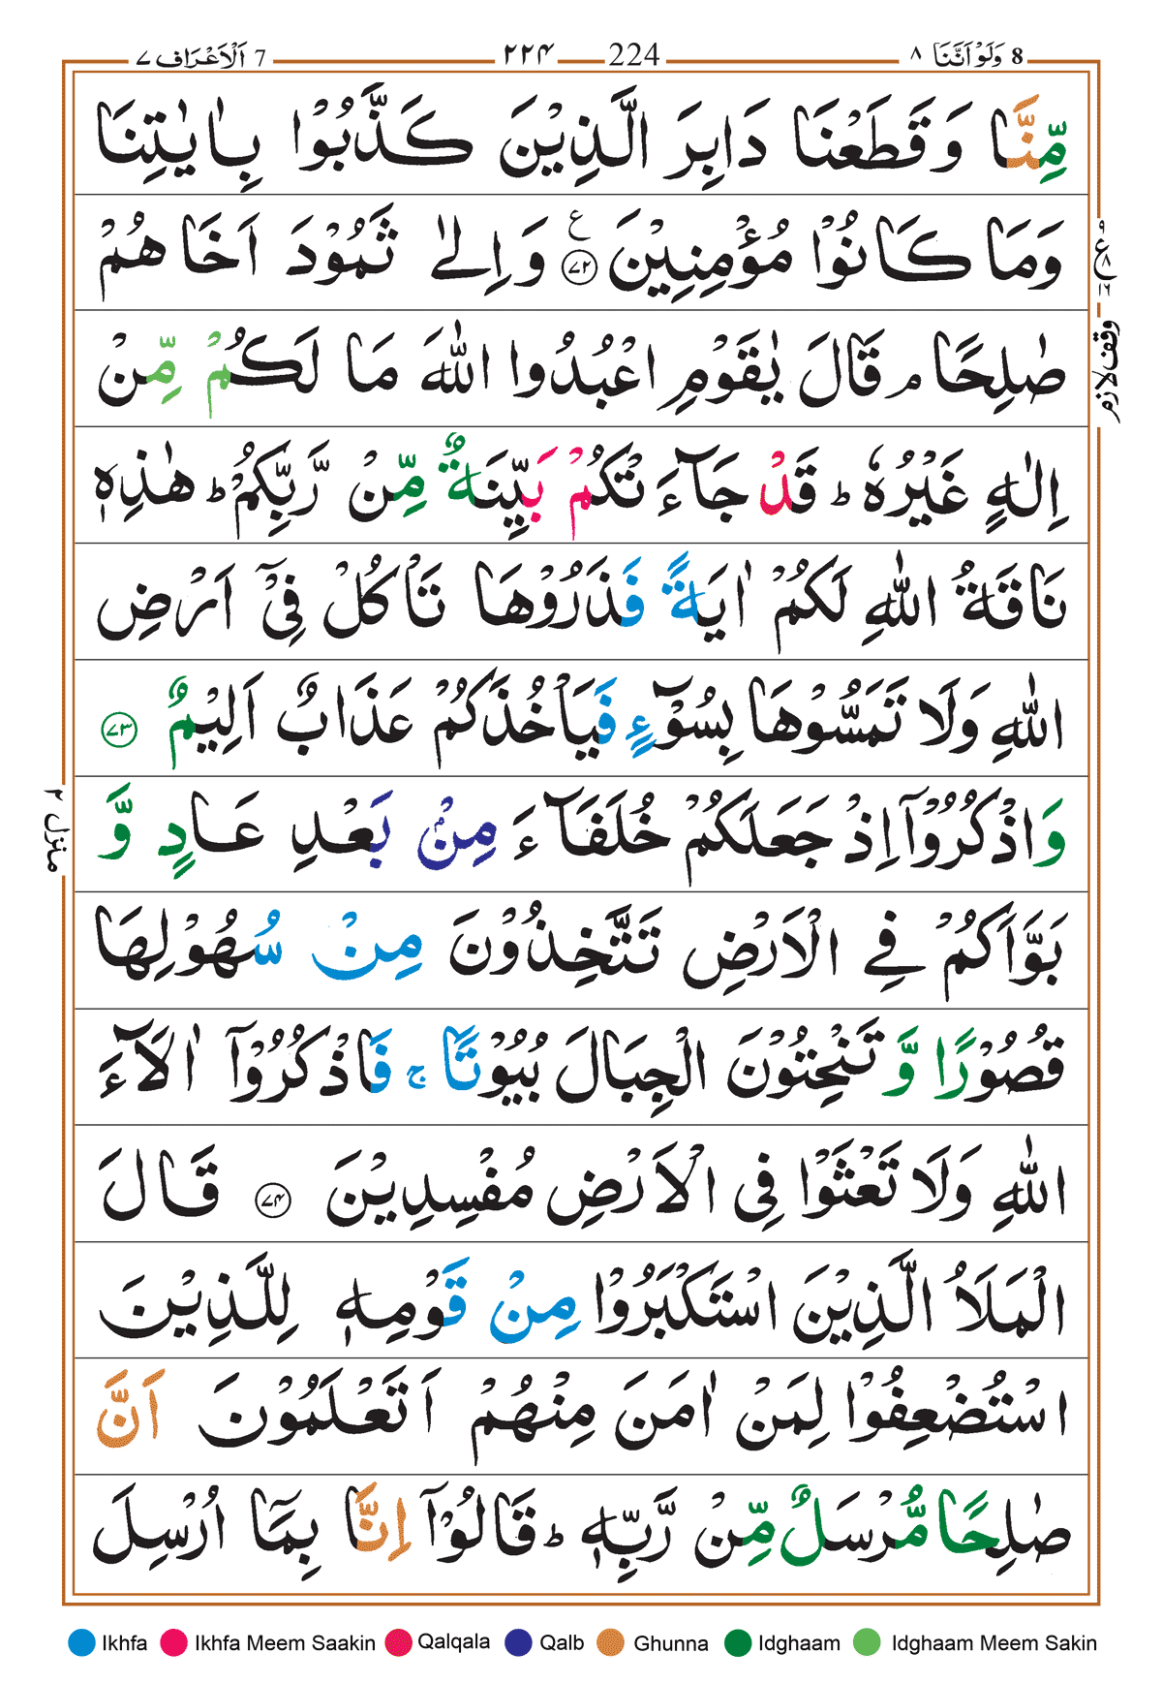 8 وَلَوْ اَنَّنَا ٨
224 ٢٢٤
7 اَلْاَعْرَاف ٧
مِّنَّا وَقَطَعْنَا دَابِرَ الَّذِيْنَ كَذَّبُوْا بِاٰيٰتِنَا
وَمَا كَانُوْا مُؤْمِنِيْنَ ۝٧٢ ع وَاِلٰى ثَمُوْدَ اَخَاهُمْ
صٰلِحًا ۘ قَالَ يٰقَوْمِ اعْبُدُوا اللّٰهَ مَا لَكُمْ مِّنْ
اِلٰهٍ غَيْرُهٗ ؕ قَدْ جَآءَتْكُمْ بَيِّنَةٌ مِّنْ رَّبِّكُمْ ؕ هٰذِهٖ
نَاقَةُ اللّٰهِ لَكُمْ اٰيَةً فَذَرُوْهَا تَاْكُلْ فِيْۤ اَرْضِ
اللّٰهِ وَلَا تَمَسُّوْهَا بِسُوْٓءٍ فَيَاْخُذَكُمْ عَذَابٌ اَلِيْمٌ ۝٧٣
وَاذْكُرُوْۤا اِذْ جَعَلَكُمْ خُلَفَآءَ مِنْۢ بَعْدِ عَادٍ وَّ
بَوَّاَكُمْ فِي الْاَرْضِ تَتَّخِذُوْنَ مِنْ سُهُوْلِهَا
قُصُوْرًا وَّ تَنْحِتُوْنَ الْجِبَالَ بُيُوْتًا ۚ فَاذْكُرُوْۤا اٰلَآءَ
اللّٰهِ وَلَا تَعْثَوْا فِى الْاَرْضِ مُفْسِدِيْنَ ۝٧٤ قَالَ
الْمَلَاُ الَّذِيْنَ اسْتَكْبَرُوْا مِنْ قَوْمِهٖ لِلَّذِيْنَ
اسْتُضْعِفُوْا لِمَنْ اٰمَنَ مِنْهُمْ اَتَعْلَمُوْنَ اَنَّ
صٰلِحًا مُّرْسَلٌ مِّنْ رَّبِّهٖ ؕ قَالُوْۤا اِنَّا بِمَاۤ اُرْسِلَ
وقف لازم
منزل ٢
Ikhfa Ikhfa Meem Saakin Qalqala Qalb Ghunna Idghaam Idghaam Meem Sakin